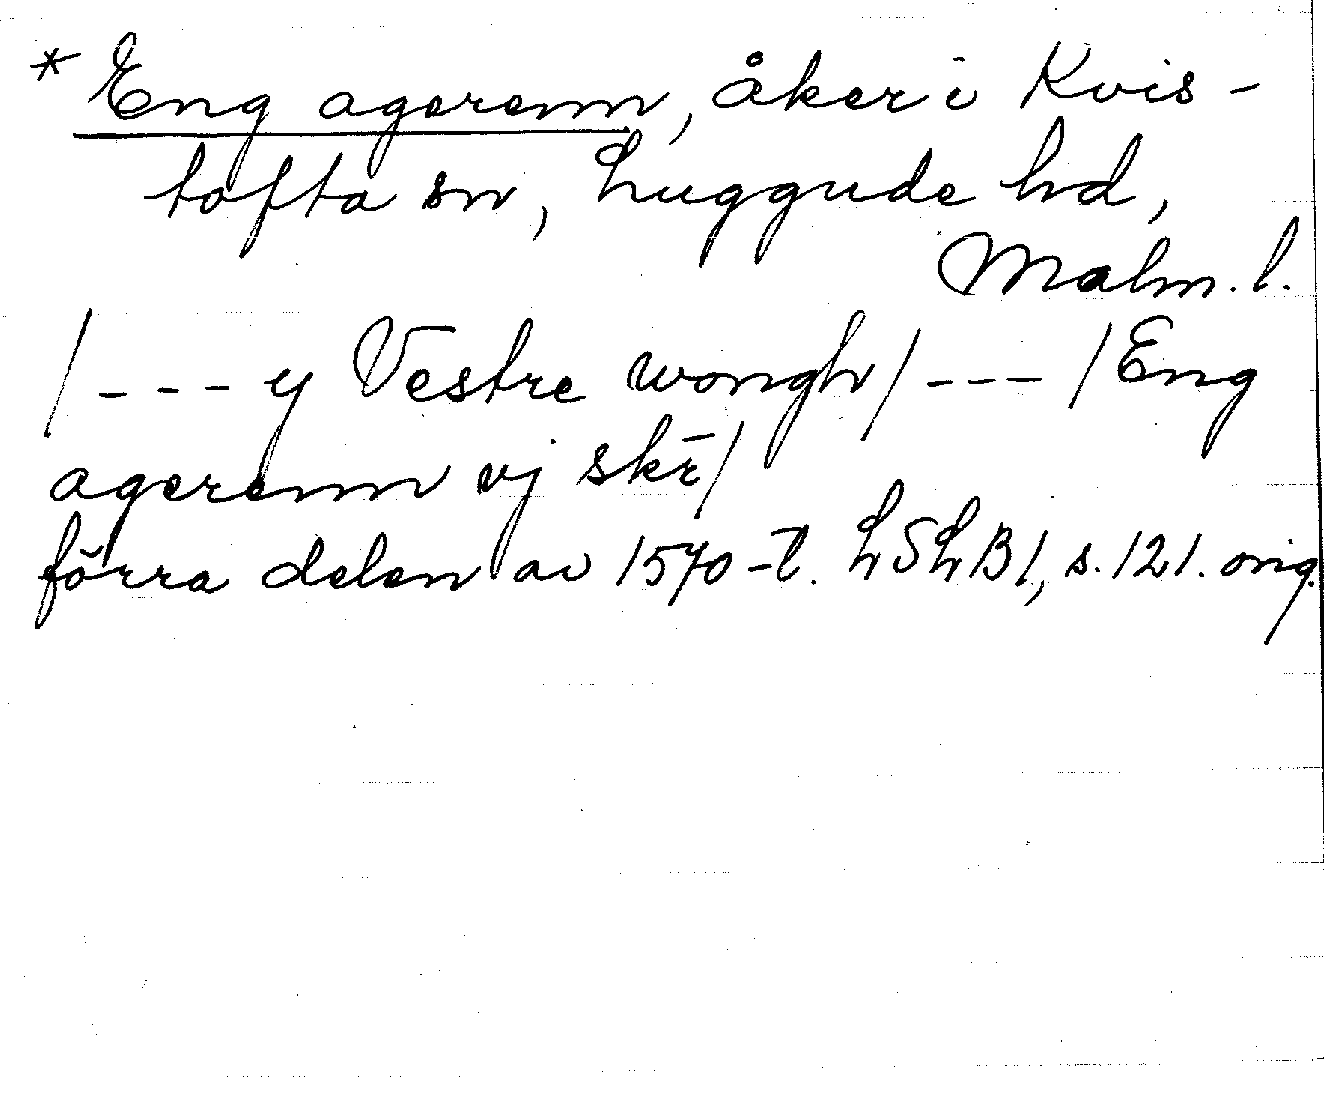 * Eng agerenn, åker i Kvis-
tofta sn, Luggude hd,
Malm. l.
/ - - - y Vestre wongh/ - - - /Eng
agerenn vj skr̄/
förra delen av 1570-t. LSLB1, s. 121. orig.